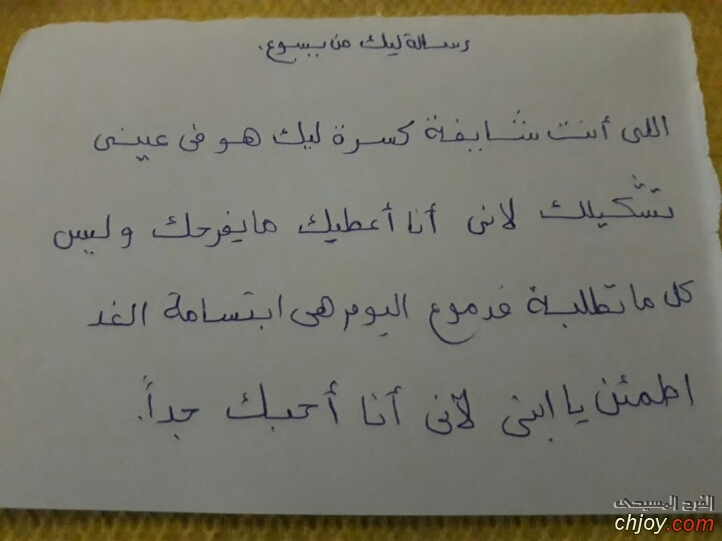 رسالة ليك من يسوع.
اللى أنت شايفة كسرة ليك هو فى عينى
تشكيلك لانى أنا أعطيك مايفرحك وليس
كل ماتطلبة فدموع اليوم هى ابتسامة الغد
اطمئن يا ابنى لأنى أنا أحبك جداً.
الفرح المسيحى
chjoy.com